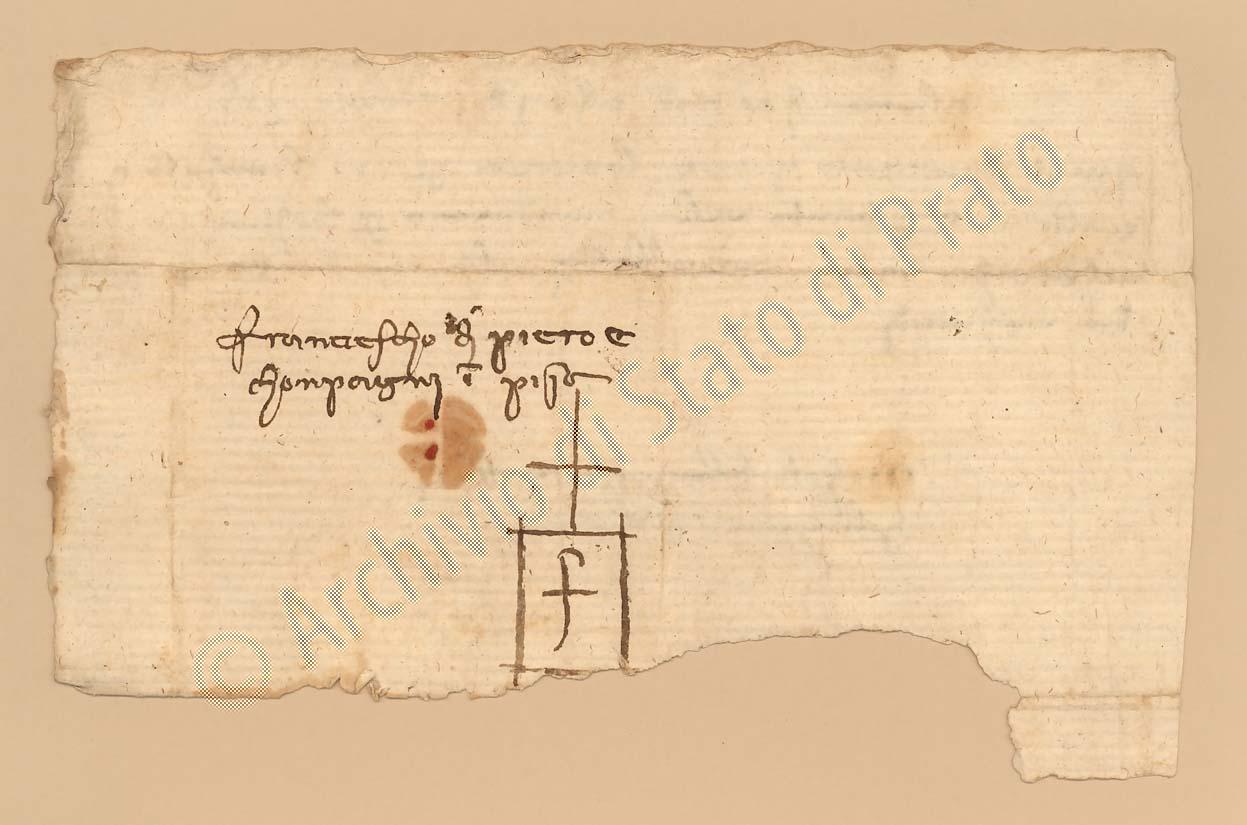 franciescho di piero e
chonpagni ī pisa
f
© Archivio di Stato di Prato